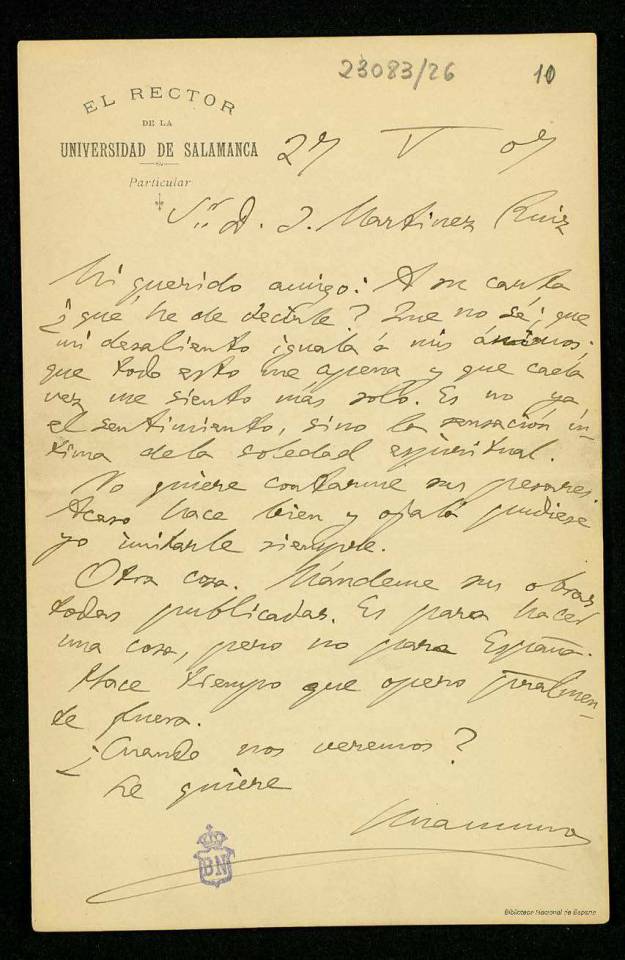 23083/26
10
EL RECTOR
DE LA
UNIVERSIDAD DE SALAMANCA
Particular
27 V 07
Sr. D. J. Martinez Ruiz
Mi querido amigo: A su carta
¿qué he de decirle? Que no sé; que
mi desaliento iguala á mis ánimos;
que todo esto me apena y que cada
vez me siento más solo. Es no ya
el sentimiento, sino la sensación ín-
tima de la soledad espiritual.
No quiere contarme sus pesares.
Acaso hace bien y ojalá pudiese
yo imitarle siempre.
Otra cosa. Mándeme sus obras
todas publicadas. Es para hacer
una cosa, pero no para España.
Hace tiempo que opero pralmen-
te fuera.
¿Cuando nos veremos?
Le quiere
Unamuno
BN
Biblioteca Nacional de España